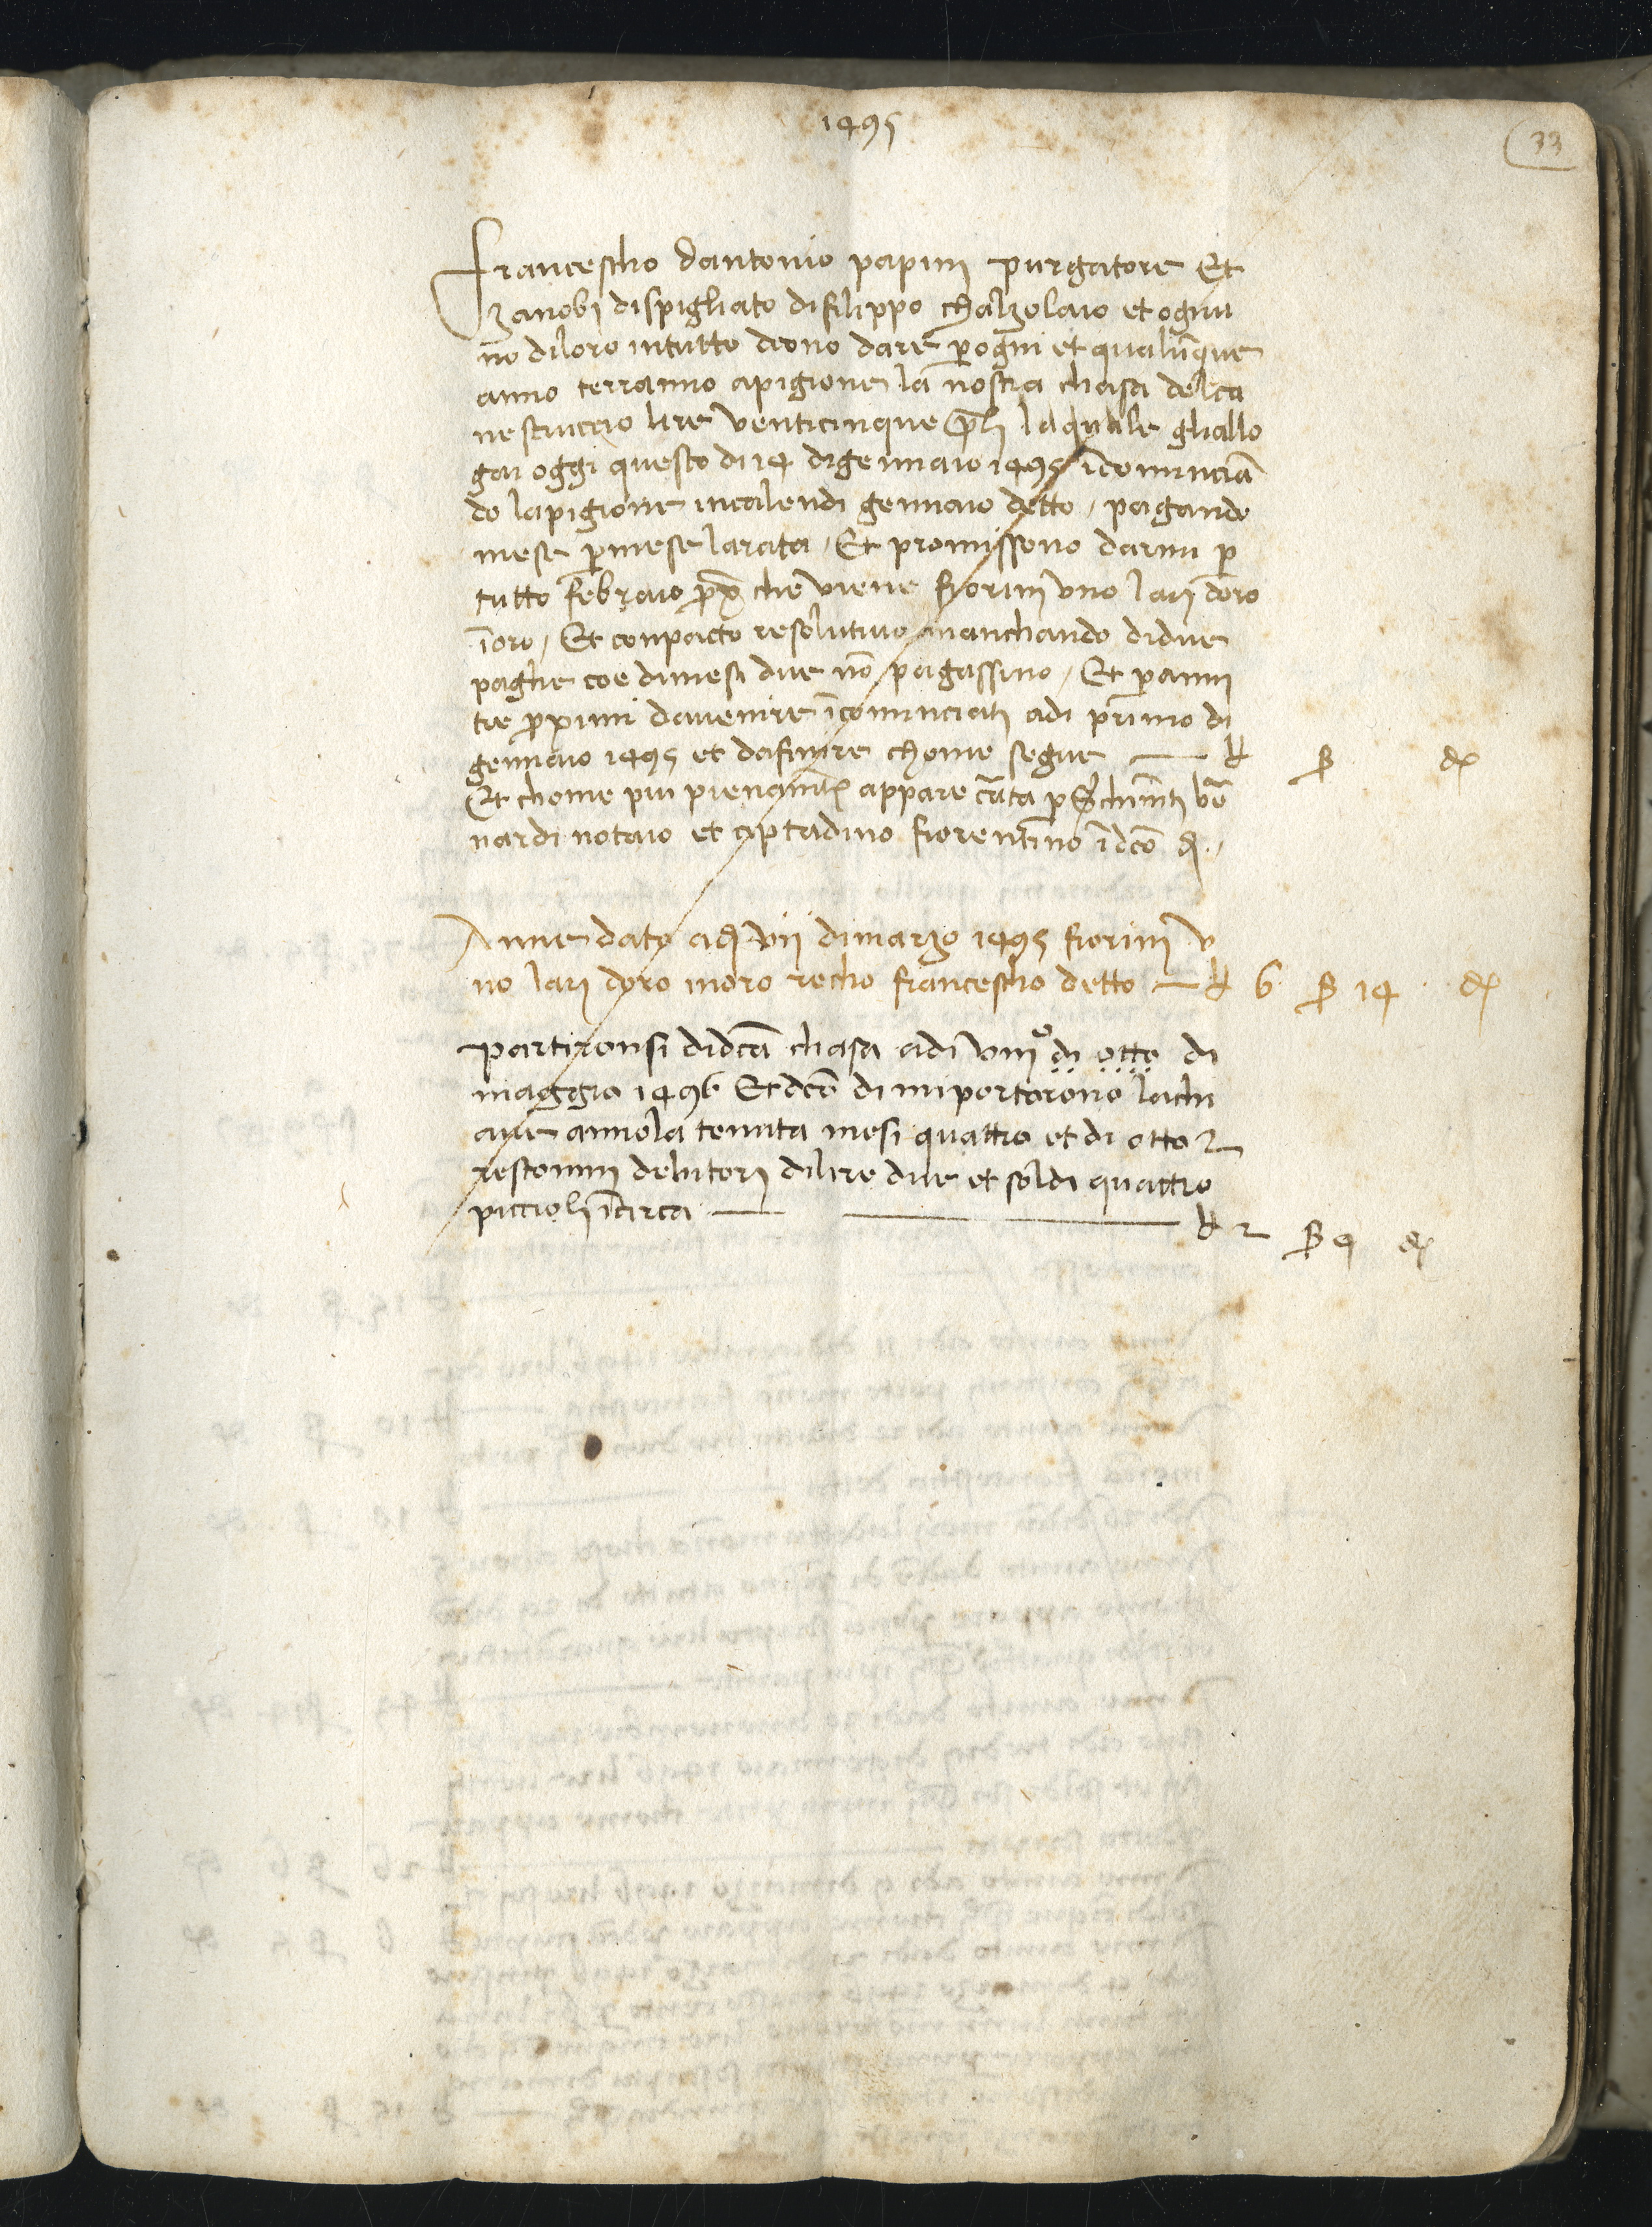 1495
33
Francescho dantonio papini purgatore Et
zanobi dispigliato difilippo chalzolaio et ogniu
no diloro intutto deono dare p ogni et qualunque
anno terranno apigione la nostra chasa del ca
nestruccio lire venticinque pli laquale gliallo
gai oggi questo di 14 digennaio 1495 icomincia
do lapigione incalendi gennaio detto, pagando
mese p mese larata, Et promissono darmi p
tutto febraio px che viene fiorini uno larj doro
ioro, Et conpacto resolutivo manchando didue
paghe coe dimesi due no pagassino, Et p anni
tre pximi davenire icominciati adi primo di
gennaio 1495 et dafinire chome segue — ₶ ß d
Et chome piu pienamte appare
nardi notaio et ciptadino fiorentino i dco di.,
Anne dato adj vij dimarzo 1495 fiorini v
no larj doro inoro recho francescho detto — ₶ 6 ß 14 d
partironsi didca chasa adi viiiº di otto di
maggio 1496 Et dco di miportorono lachi
aue annola tenuta mesi quattro et di otto
restonmi debitori dilire due et soldi quattro
piccioli icirca — — — ₶ 2 ß 4 d